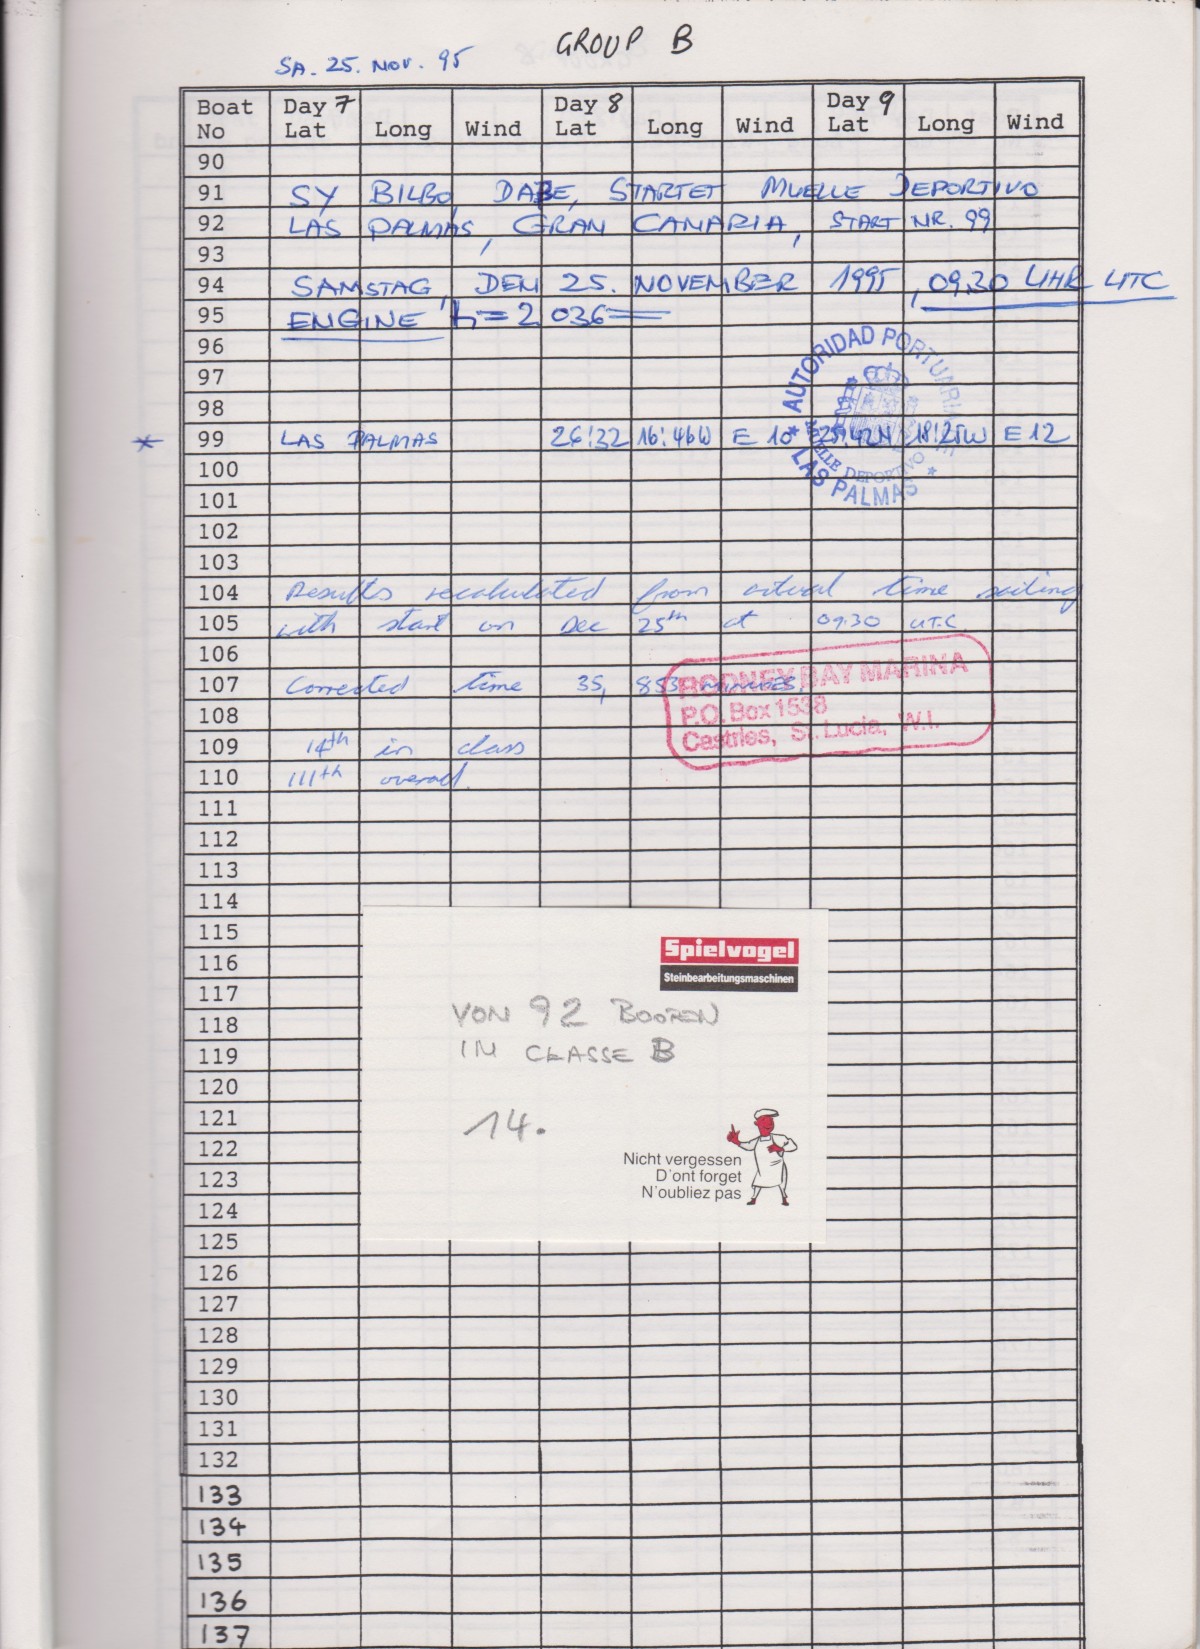 GROUP B
SA. 25. NOV. 95
Boat No Day 7 Lat Long Wind Day 8 Lat Long Wind Day 9 Lat Long Wind
90
91 SY BILBO, DABE, STARTET MUELLE DEPORTIVO
92 LAS PALMAS, GRAN CANARIA, START NR. 99
93
94 SAMSTAG, DEN 25. NOVEMBER 1995, 09.30 UHR UTC
95 ENGINE h = 2 036
96
97
98
* 99 LAS PALMAS 26:32 16:46W E 10 25:42N 18:25W E 12
AUTORIDAD PORTUARIA
MUELLE DEPORTIVO
* LAS PALMAS *
100
101
102
103
104 Results recalculated from actual time sailing
105 with start on Dec 25th at 09.30 UTC.
106
107 Corrected time 35, 853 minutes.
RODNEY BAY MARINA
P.O. Box 1538
Castries, St. Lucia, W.I.
108
109 14th in class
110 111th overall.
111
112
113
114
115
116
117
118
119
120
121
122
123
124
125
126
127
128
129
130
131
132
133
134
135
136
137
Spielvogel
Steinbearbeitungsmaschinen
VON 92 BOOTEN
IN CLASSE B
14.
Nicht vergessen
D'ont forget
N'oubliez pas